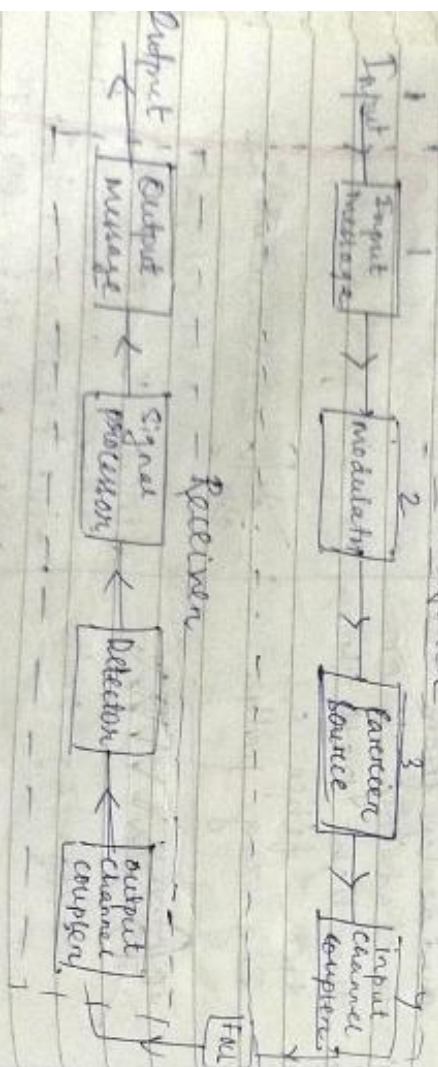 1
2
3
4
Input
Input
message
modulator
Carrier
source
input
channel
coupler
Receiver
Output
Output
message
Signal
processor
Detector
output
channel
coupler